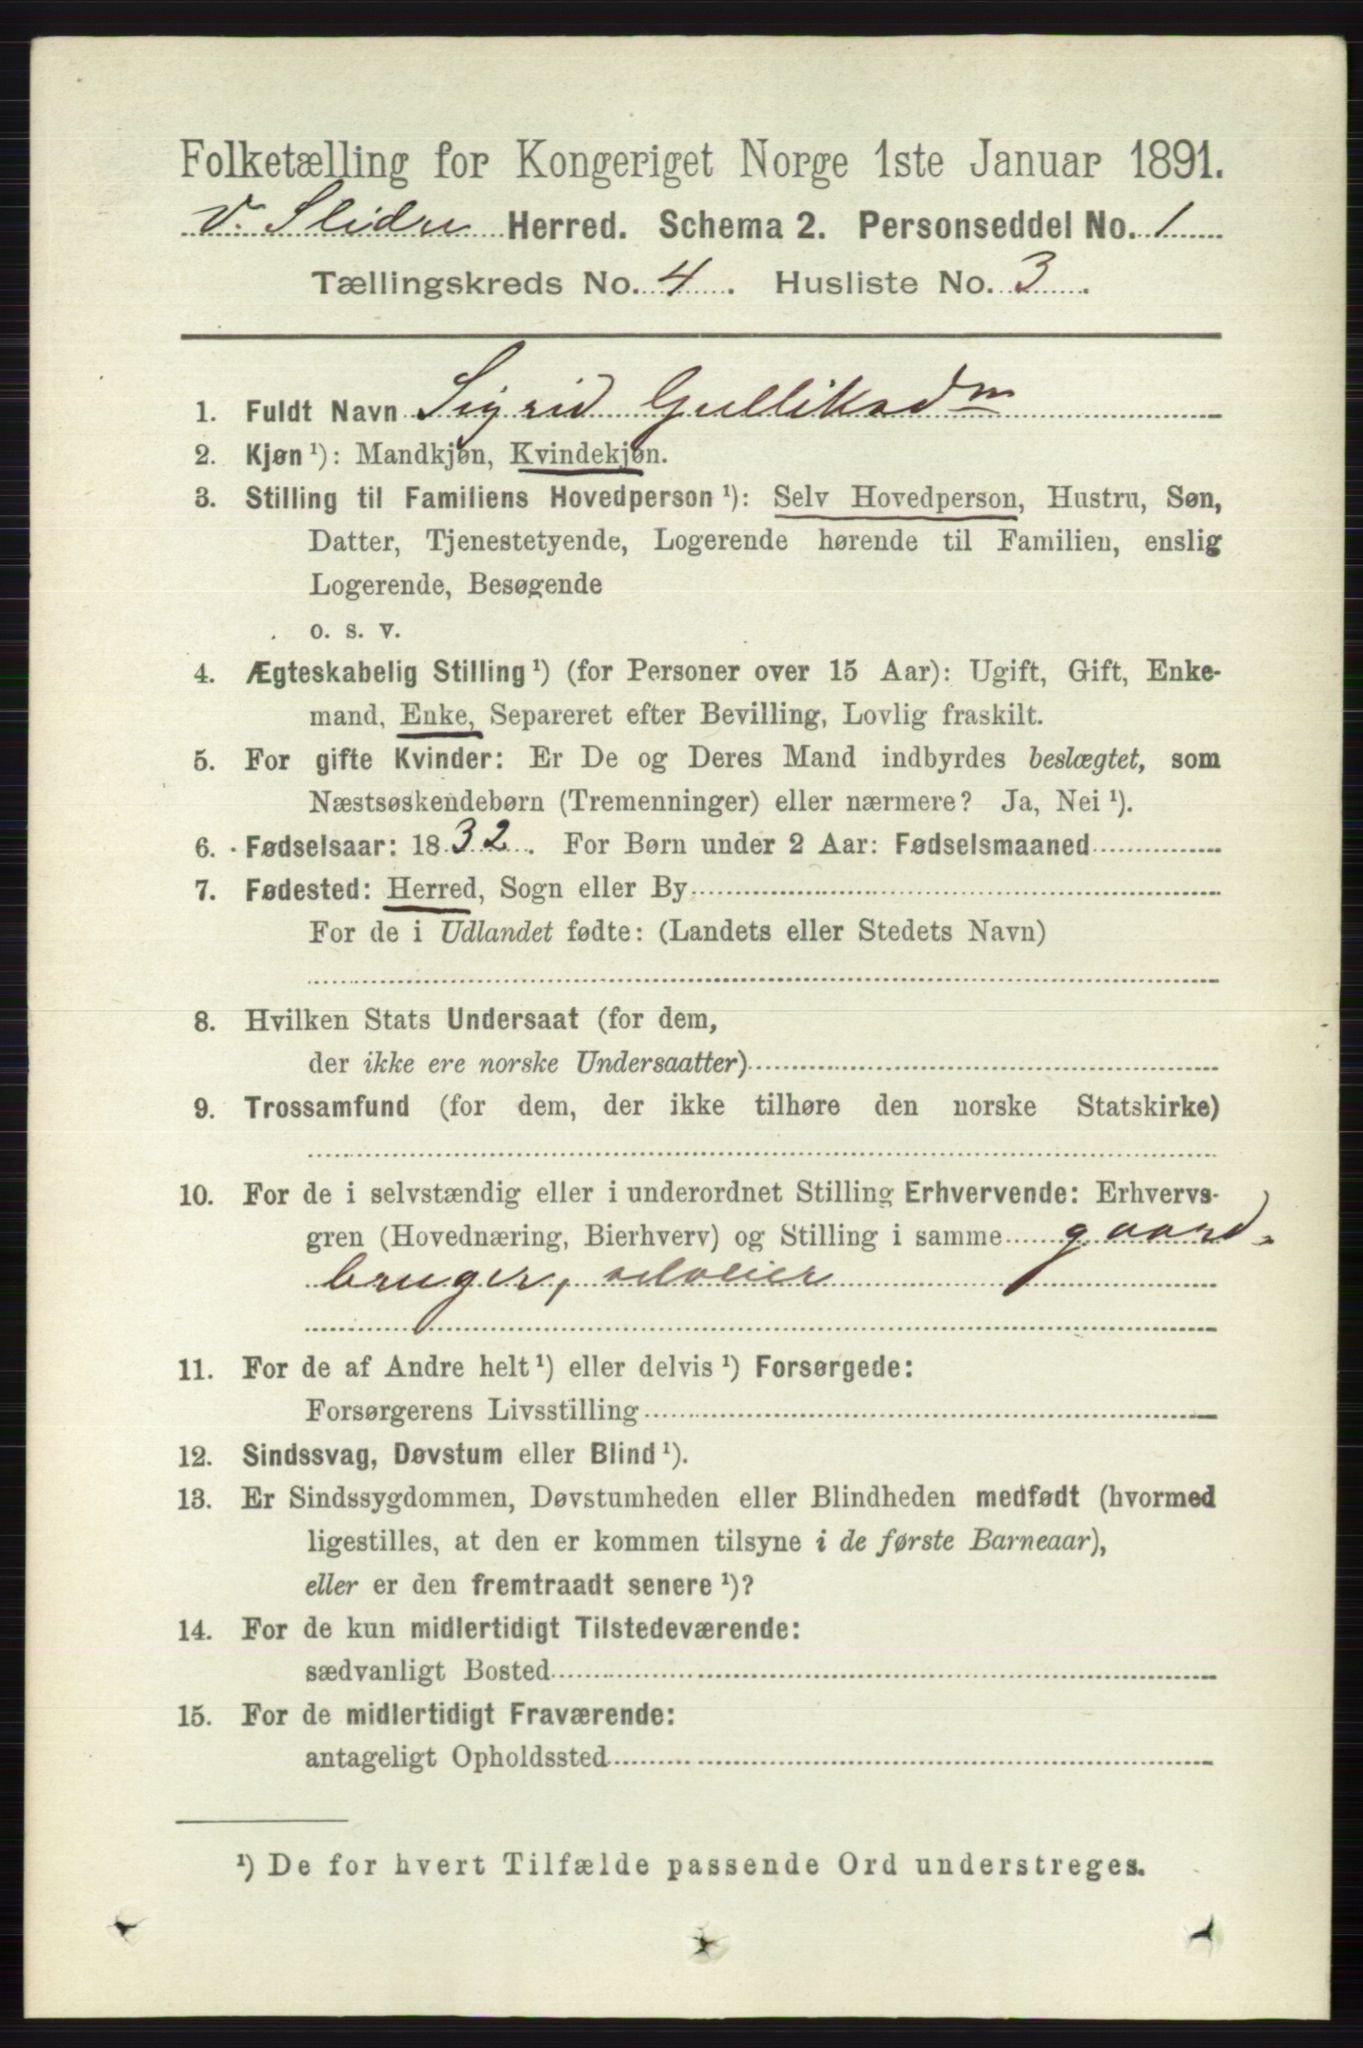 Folketælling for Kongeriget Norge 1ste Januar 1891.
V. Slidre Herred. Schema 2. Personseddel No. 1
Tællingskreds No. 4. Husliste No. 3.
1. Fuldt Navn Sigrid Gulliksdtr
2. Kjøn ¹): Mandkjøn, Kvindekjøn.
3. Stilling til Familiens Hovedperson ¹): Selv Hovedperson, Hustru, Søn,
Datter, Tjenestetyende, Logerende hørende til Familien, enslig
Logerende, Besøgende
o. s. v.
4. Ægteskabelig Stilling ¹) (for Personer over 15 Aar): Ugift, Gift, Enke-
mand, Enke, Separeret efter Bevilling, Lovlig fraskilt.
5. For gifte Kvinder: Er De og Deres Mand indbyrdes beslægtet, som
Næstsøskendebørn (Tremenninger) eller nærmere? Ja, Nei ¹).
6. Fødselsaar: 1832. For Børn under 2 Aar: Fødselsmaaned
7. Fødested: Herred, Sogn eller By
For de i Udlandet fødte: (Landets eller Stedets Navn)
8. Hvilken Stats Undersaat (for dem,
der ikke ere norske Undersaatter)
9. Trossamfund (for dem, der ikke tilhøre den norske Statskirke)
10. For de i selvstændig eller i underordnet Stilling Erhvervende: Erhvervs-
gren (Hovednæring, Bierhverv) og Stilling i samme gaard-
bruger, selveier
11. For de af Andre helt ¹) eller delvis ¹) Forsørgede:
Forsørgerens Livsstilling
12. Sindssvag, Døvstum eller Blind ¹).
13. Er Sindssygdommen, Døvstumheden eller Blindheden medfødt (hvormed
ligestilles, at den er kommen tilsyne i de første Barneaar),
eller er den fremtraadt senere ¹)?
14. For de kun midlertidigt Tilstedeværende:
sædvanligt Bosted
15. For de midlertidigt Fraværende:
antageligt Opholdssted
¹) De for hvert Tilfælde passende Ord understreges.